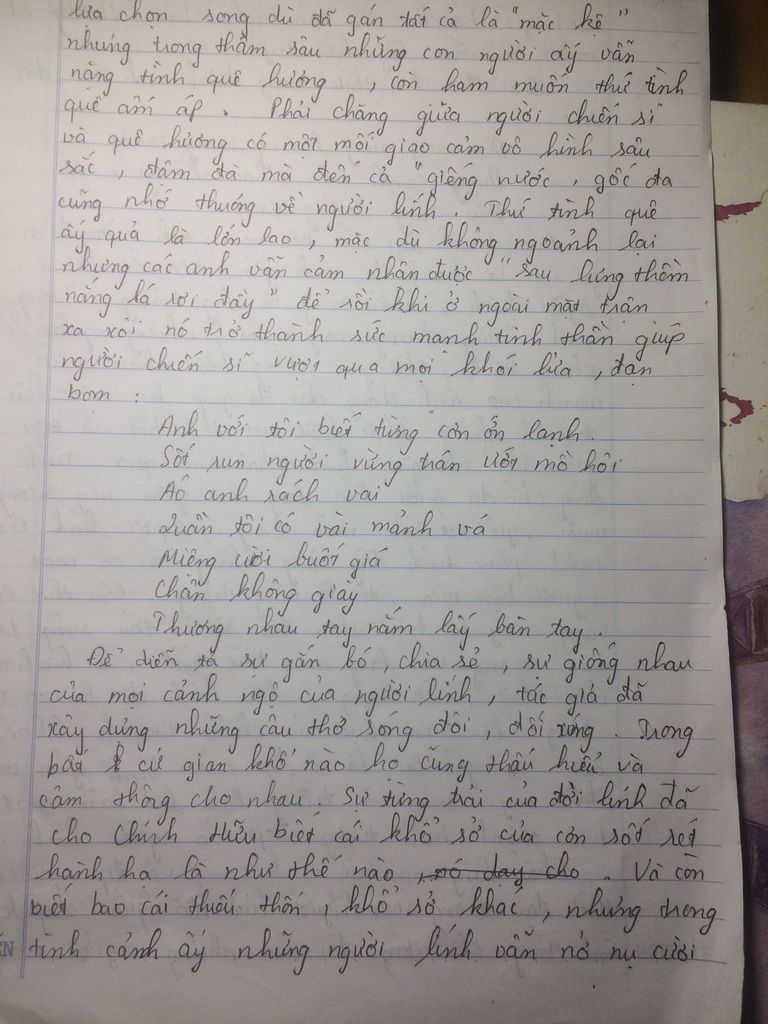 lựa chọn song dù đã gán tất cả là "mặc kệ"
nhưng trong thẳm sâu những con người ấy vẫn
nặng tình quê hương, còn ham muốn thứ tình
quê ấm áp. Phải chăng giữa người chiến sĩ
và quê hương có một mối giao cảm vô hình sâu
sắc, đậm đà mà đến cả "giếng nước, gốc đa
cũng nhớ thương về người lính. Thứ tình quê
ấy quả là lớn lao, mặc dù không ngoảnh lại
nhưng các anh vẫn cảm nhận được "sau lưng thềm
nắng lá rơi đầy" để rồi khi ở ngoài mặt trận
xa xôi nó trở thành sức mạnh tinh thần giúp
người chiến sĩ vượt qua mọi khói lửa, đạn
bom :
Anh với tôi biết từng cơn ớn lạnh.
Sốt run người vừng trán ướt mồ hôi
Aó anh rách vai
Quần tôi có vài mảnh vá
Miệng cười buốt giá
Chân không giày
Thương nhau tay nắm lấy bàn tay.
Để diễn tả sự gắn bó, chia sẻ, sự giống nhau
của mọi cảnh ngộ của người lính, tác giả đã
xây dựng những câu thơ sóng đôi, đối xứng. Trong
bất cứ gian khổ nào họ cũng thấu hiểu và
cảm thông cho nhau. Sự từng trải của đời lính đã
cho Chính Hữu biết cái khổ sở của cơn sốt rét
hành hạ là như thế nào, nó day cho. Và còn
biết bao cái thiếu thốn, khổ sở khác, nhưng trong
tình cảnh ấy những người lính vẫn nở nụ cười